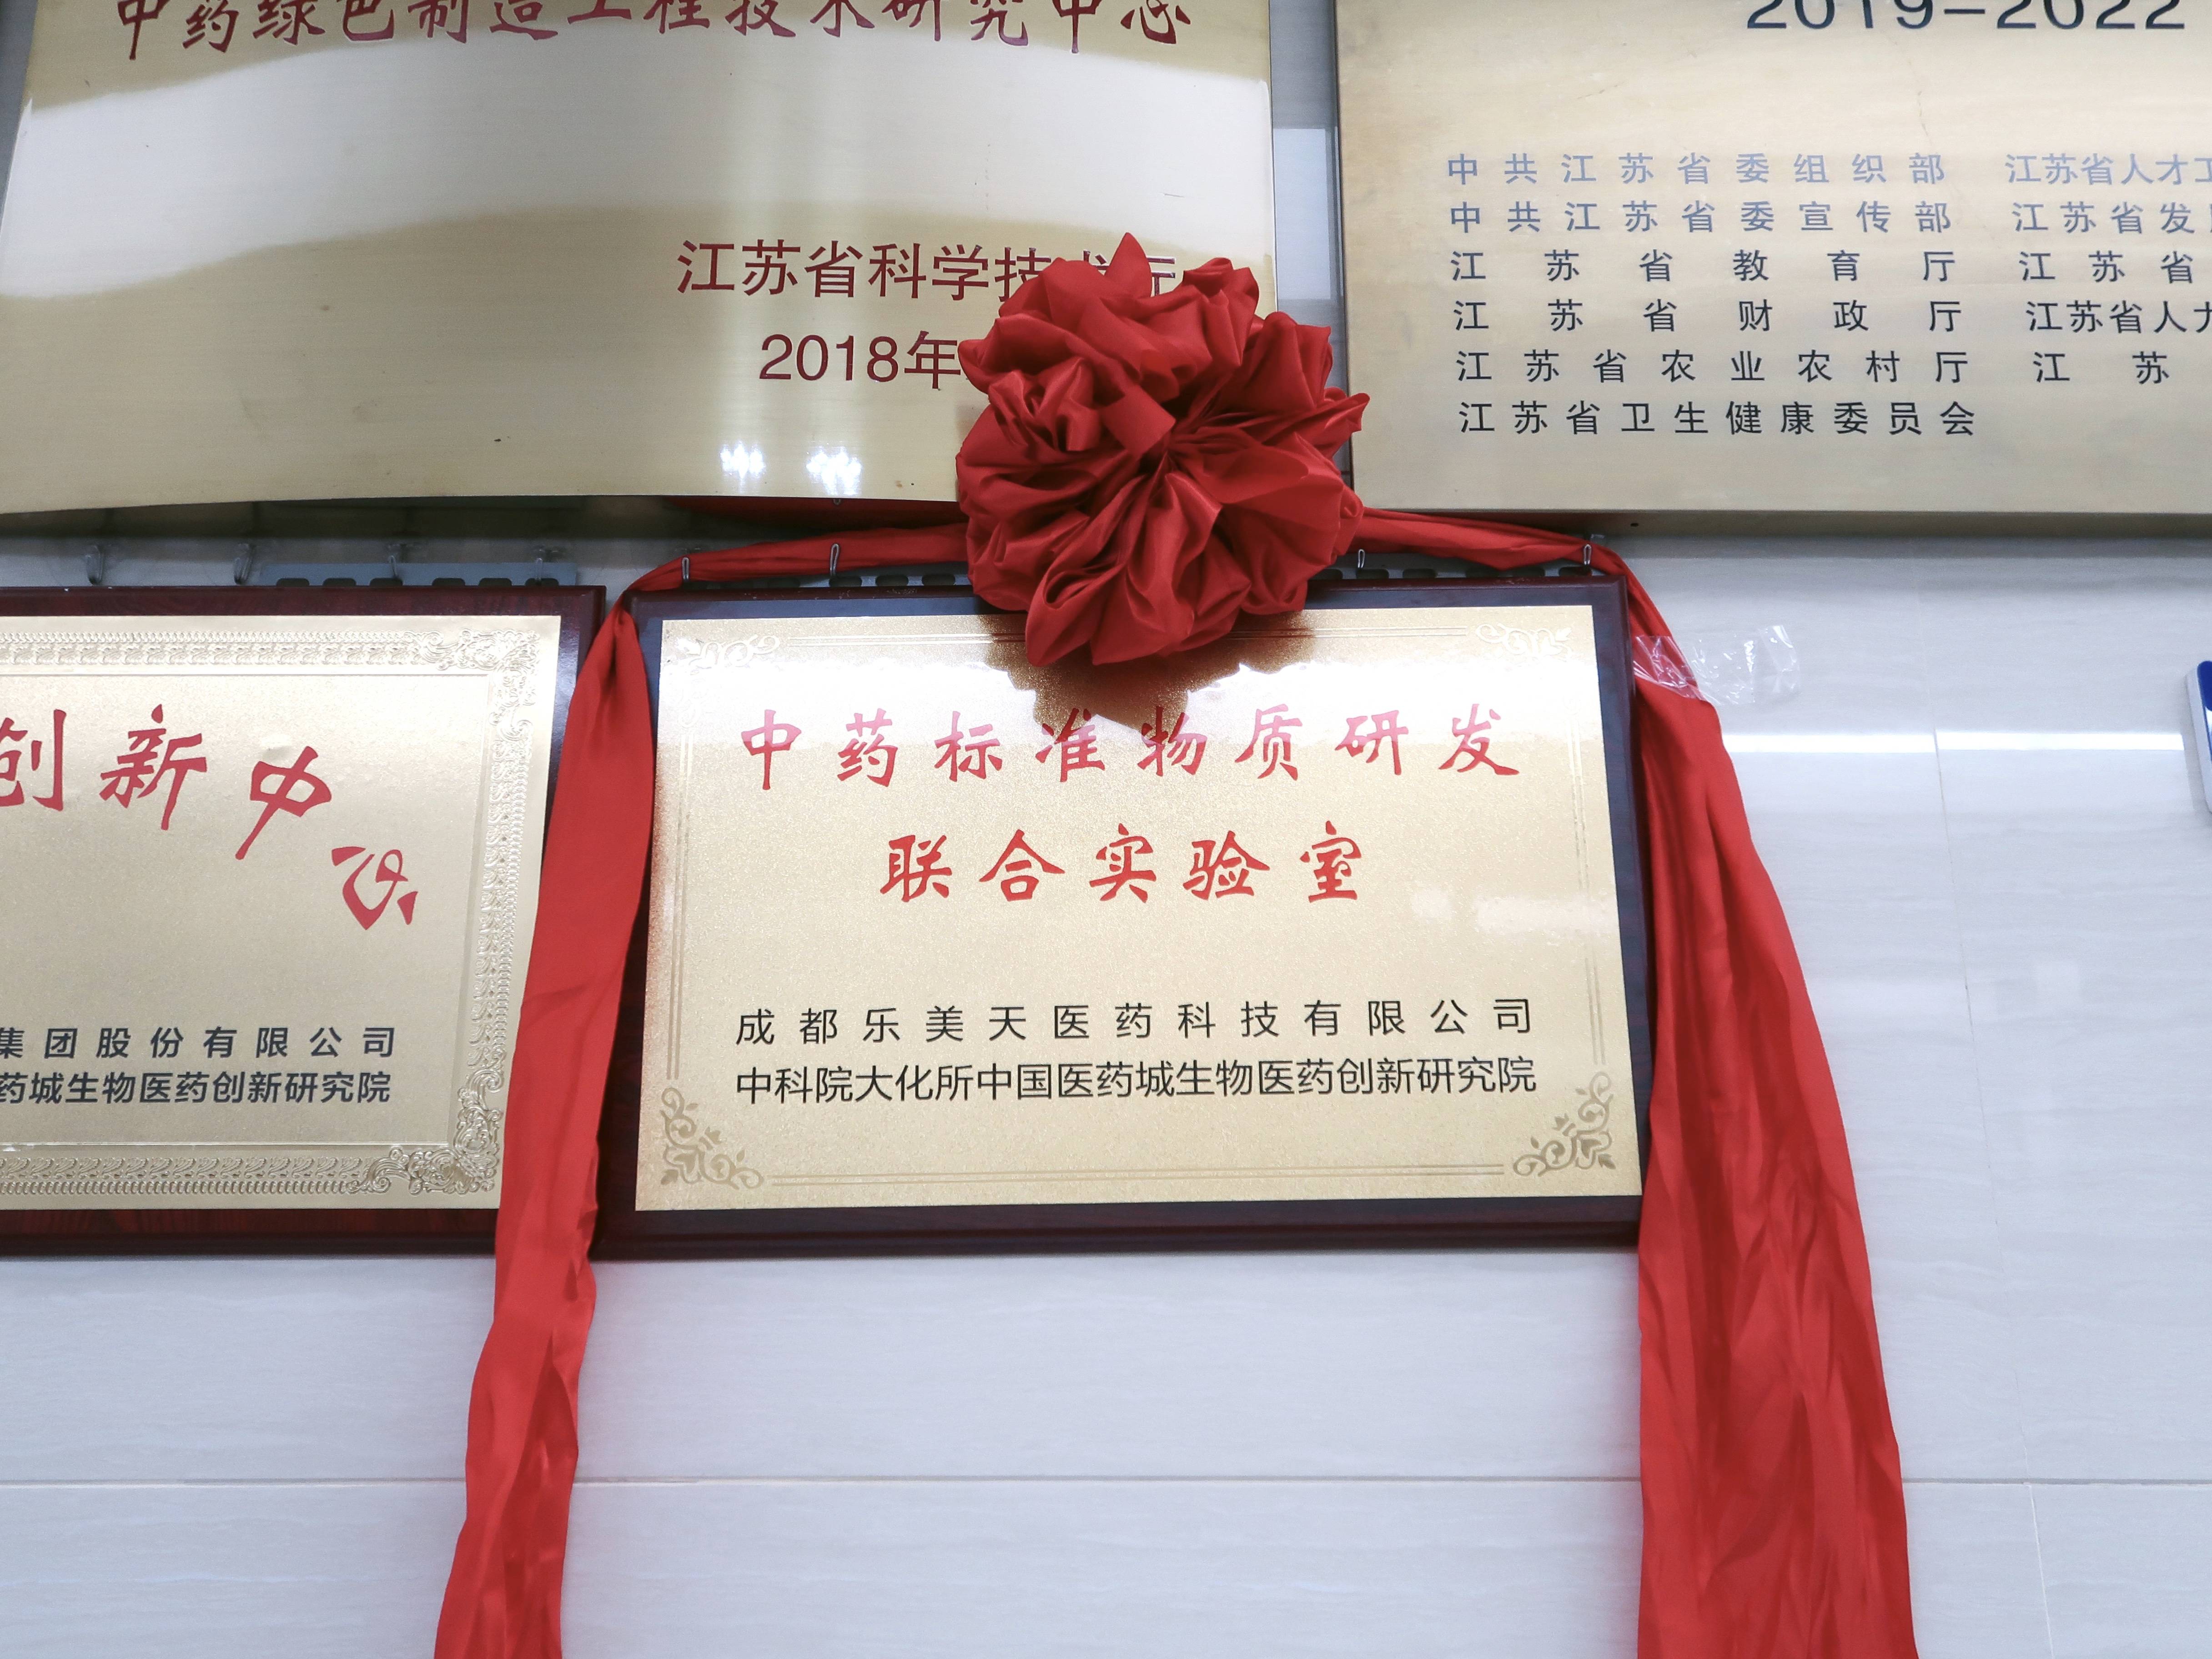 中药绿色制造工程技术研究中心
江苏省科学技术厅
2018年
2019-2022
中共江苏省委组织部 江苏省人才工
中共江苏省委宣传部 江苏省发
江苏省教育厅 江苏省
江苏省财政厅 江苏省人力
江苏省农业农村厅 江苏
江苏省卫生健康委员会
创新中心
集团股份有限公司
药城生物医药创新研究院
中药标准物质研发
联合实验室
成都乐美天医药科技有限公司
中科院大化所中国医药城生物医药创新研究院